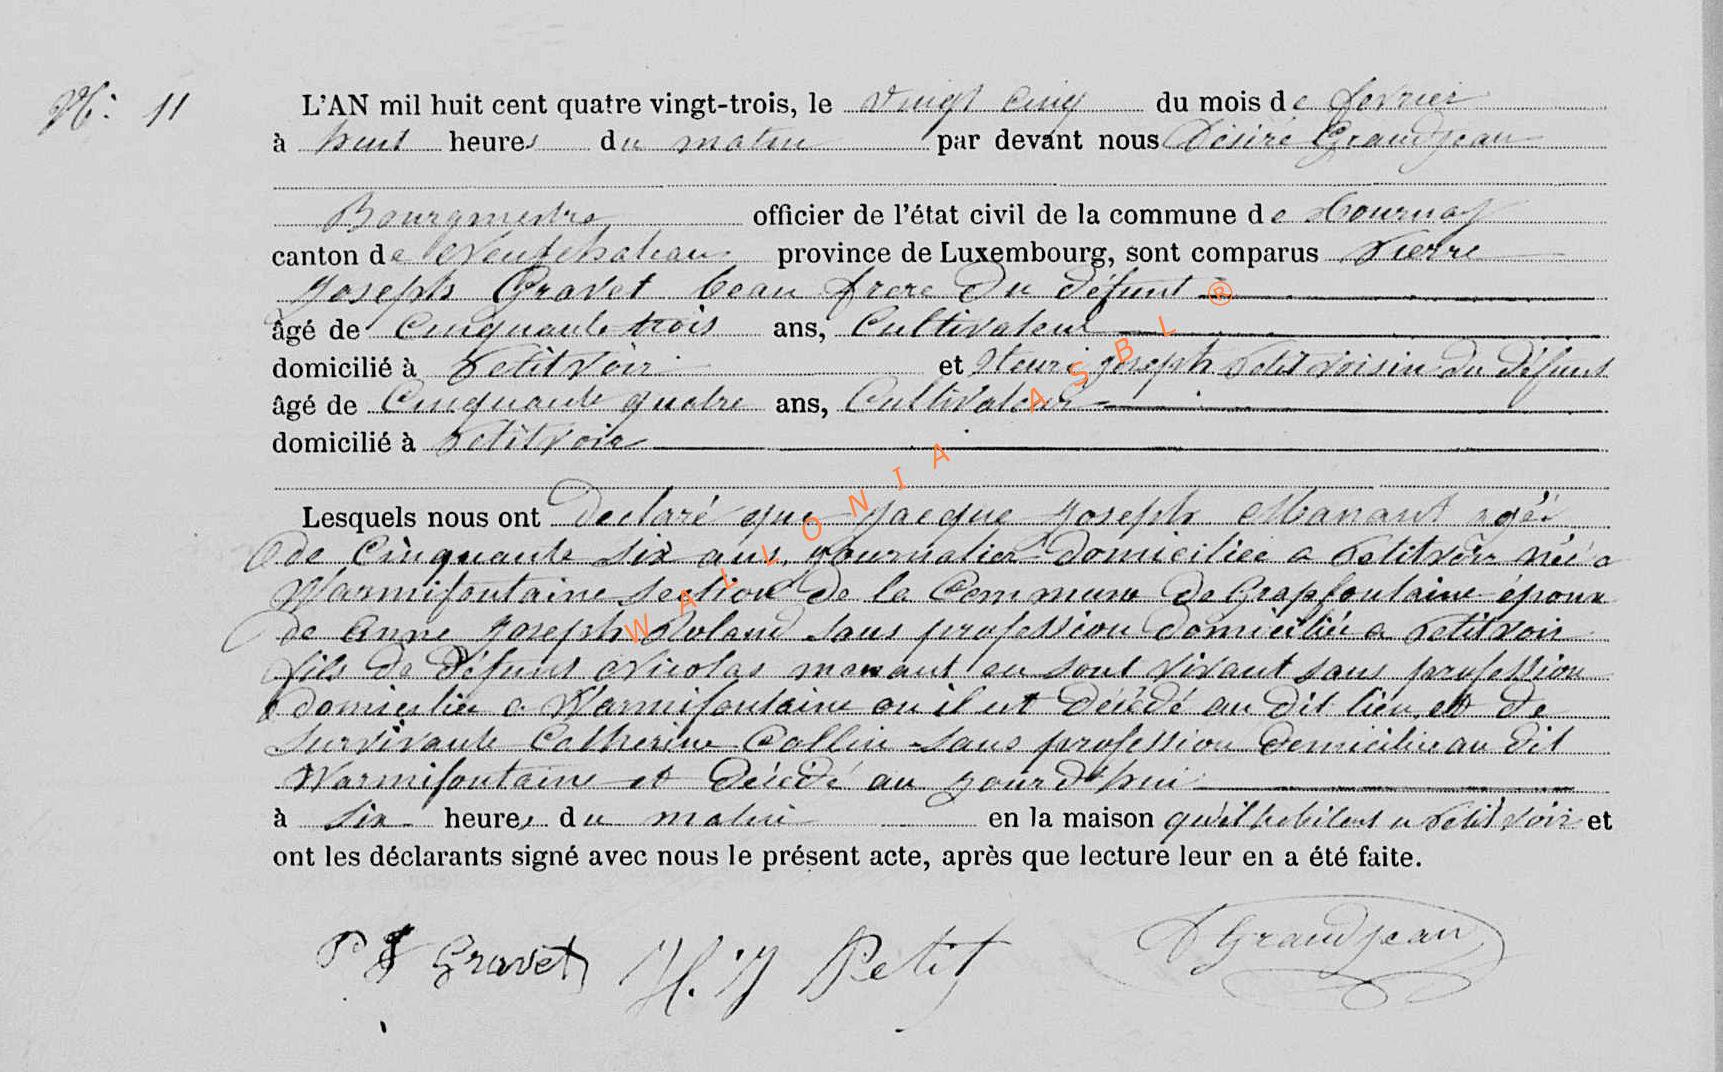 N° 11
L'AN mil huit cent quatre vingt-trois, le vingt cinq du mois de fevrier
à huit heures du matin par devant nous Désiré Grandjean
Bourgmestre officier de l'état civil de la commune de Tournay
canton de Neufchateau province de Luxembourg, sont comparus Pierre
Joseph Gravet beau frere du défunt
âgé de Cinquante trois ans, Cultivateur
domicilié à Petitvoir et Henri joseph Petit voisin du défunt
âgé de Cinquante quatre ans, Cultivateur
domicilié à Petitvoir
Lesquels nous ont declaré que Jacque Joseph Manant agé
de Cinquante six ans, journalier domiciliee a Petitvoir née a
Warmifontaine section de la Commune de Grapfontaine époux
de Anne Joseph Roland sans profession domiciliée a Petitvoir
fils de défunt Nicolas manant en sont vivant sans profession
domicilier a Warmifontaine ou il est décédé au dit lieu et de
survivante Catherine Collin sans profession domiciliee au dit
Warmifontaine et décédé au jourd'hui
à six heures du matin en la maison qu'il habitent a Petitvoir et
ont les déclarants signé avec nous le présent acte, après que lecture leur en a été faite.
P J Gravet H. J Petit D Grandjean
WALLONIA ASBL ®